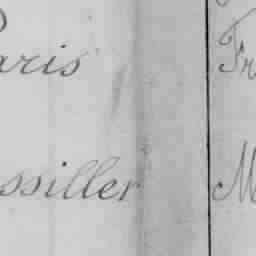 aris Fr
ssiller M